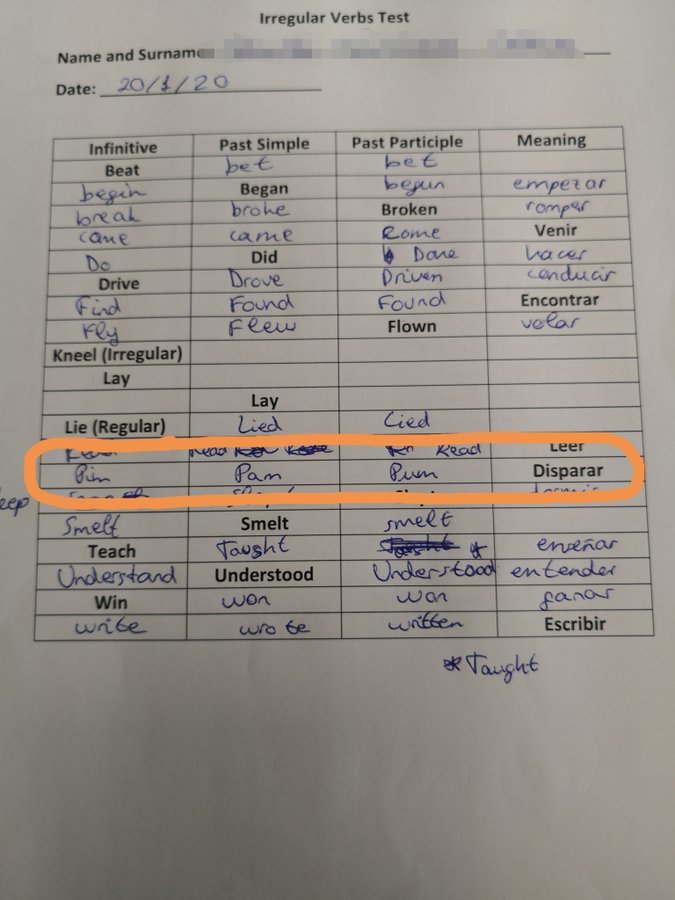 Irregular Verbs Test
Name and Surname
Date: 20/1/20
Infinitive Past Simple Past Participle Meaning
Beat bet bet
begin Began begun empezar
break broke Broken romper
came came Come Venir
Do Did Done hacer
Drive Drove Driven conducir
Find Found Found Encontrar
Fly Flew Flown volar
Kneel (Irregular)
Lay
Lay
Lie (Regular) Lied Lied
Read Read Leer
Pim Pam Pum Disparar
Smelt Smelt smelt
Teach Taught * enseñar
Understand Understood Understood entender
Win won won ganar
write wrote written Escribir
*Taught